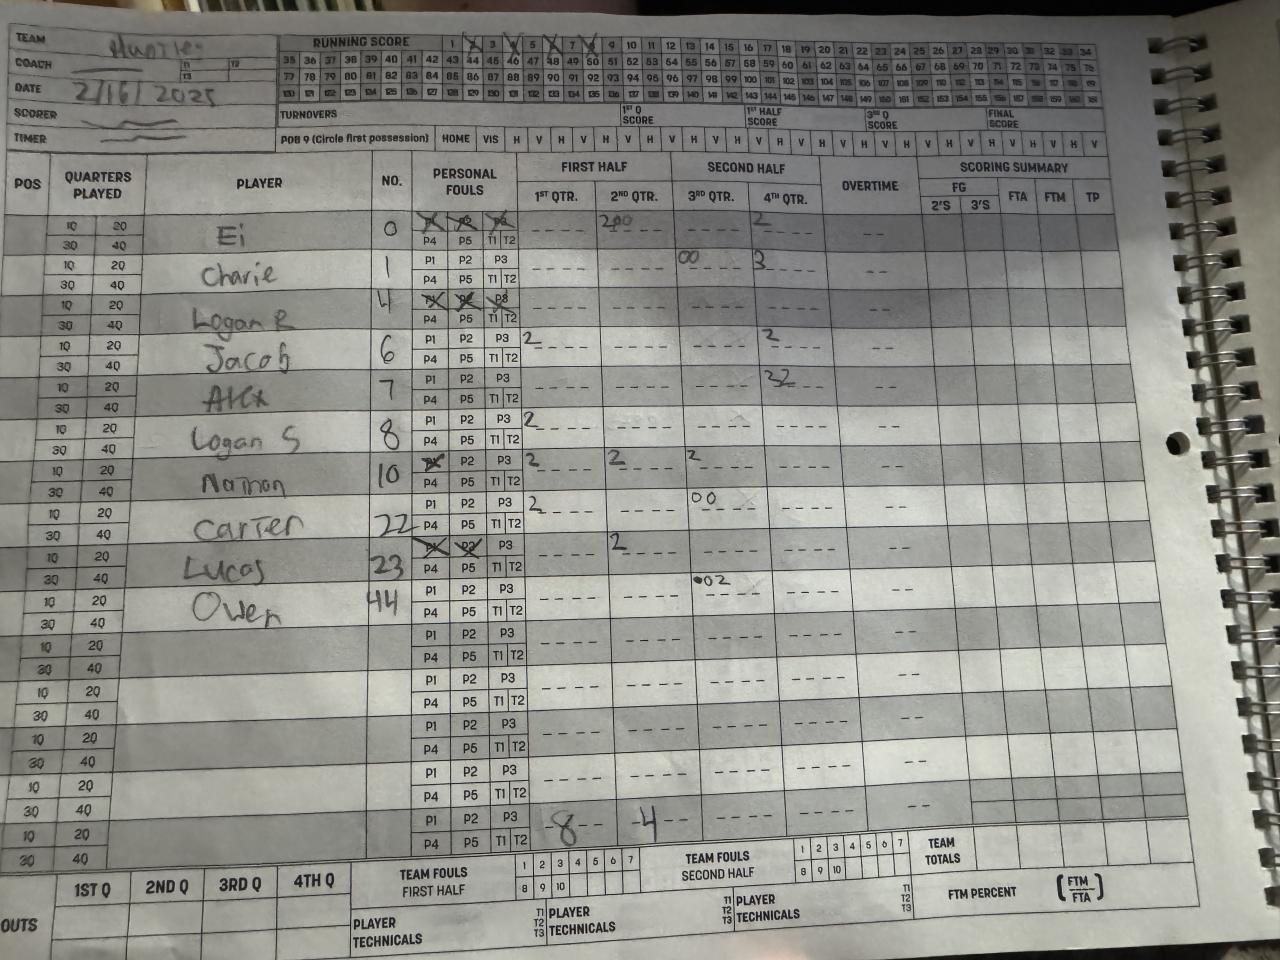 TEAM
COACH T1 T2
T3
DATE 2/16/2025
SCORER
TIMER
RUNNING SCORE 1 3 5 7 9 10 11 12 13 14 15 16 17 18 19 20 21 22 23 24 25 26 27 28 29 30 31 32 33 34
35 36 37 38 39 40 41 42 43 44 45 46 47 48 49 50 51 52 53 54 55 56 57 58 59 60 61 62 63 64 65 66 67 68 69 70 71 72 73 74 75 76
77 78 79 80 81 82 83 84 85 86 87 88 89 90 91 92 93 94 95 96 97 98 99 100 101 102 103 104 105 106 107 108 109 110 111 112 113 114 115 116 117 118 119
120 121 122 123 124 125 126 127 128 129 130 131 132 133 134 135 136 137 138 139 140 141 142 143 144 145 146 147 148 149 150 151 152 153 154 155 156 157 158 159 160 161
TURNOVERS 1ST Q SCORE 1ST HALF SCORE 3RD Q SCORE FINAL SCORE
POB 9 (Circle first possession) HOME VIS H V H V H V H V H V H V H V H V H V H V H V H V H V H V H V
POS QUARTERS PLAYED PLAYER NO. PERSONAL FOULS FIRST HALF SECOND HALF OVERTIME SCORING SUMMARY
1ST QTR. 2ND QTR. 3RD QTR. 4TH QTR. FG FTA FTM TP
2'S 3'S
1Q 2Q Ei 0 200 2
3Q 4Q P4 P5 T1 T2
1Q 2Q Charie 1 P1 P2 P3 00 3
3Q 4Q P4 P5 T1 T2
1Q 2Q Logan R 4 P1 P2 P3
3Q 4Q P4 P5 T1 T2
1Q 2Q Jacob 6 P1 P2 P3 2 2
3Q 4Q P4 P5 T1 T2
1Q 2Q Alex 7 P1 P2 P3 32
3Q 4Q P4 P5 T1 T2
1Q 2Q Logan S 8 P1 P2 P3 2
3Q 4Q P4 P5 T1 T2
1Q 2Q Nathon 10 P2 P3 2 2 2
3Q 4Q P4 P5 T1 T2
1Q 2Q Carter 22 P1 P2 P3 2 00
3Q 4Q P4 P5 T1 T2
1Q 2Q Lucas 23 P1 P2 P3 2
3Q 4Q P4 P5 T1 T2
1Q 2Q Owen 44 P1 P2 P3 02
3Q 4Q P4 P5 T1 T2
1Q 2Q P1 P2 P3
3Q 4Q P4 P5 T1 T2
1Q 2Q P1 P2 P3
3Q 4Q P4 P5 T1 T2
1Q 2Q P1 P2 P3
3Q 4Q P4 P5 T1 T2
1Q 2Q P1 P2 P3
3Q 4Q P4 P5 T1 T2
1Q 2Q P1 P2 P3 8 4
3Q 4Q P4 P5 T1 T2
1ST Q 2ND Q 3RD Q 4TH Q TEAM FOULS FIRST HALF 1 2 3 4 5 6 7 TEAM FOULS SECOND HALF 1 2 3 4 5 6 7 TEAM TOTALS
8 9 10 8 9 10
OUTS PLAYER TECHNICALS T1 T2 T3 PLAYER TECHNICALS T1 T2 T3 PLAYER TECHNICALS T1 T2 T3 FTM PERCENT (FTM/FTA)